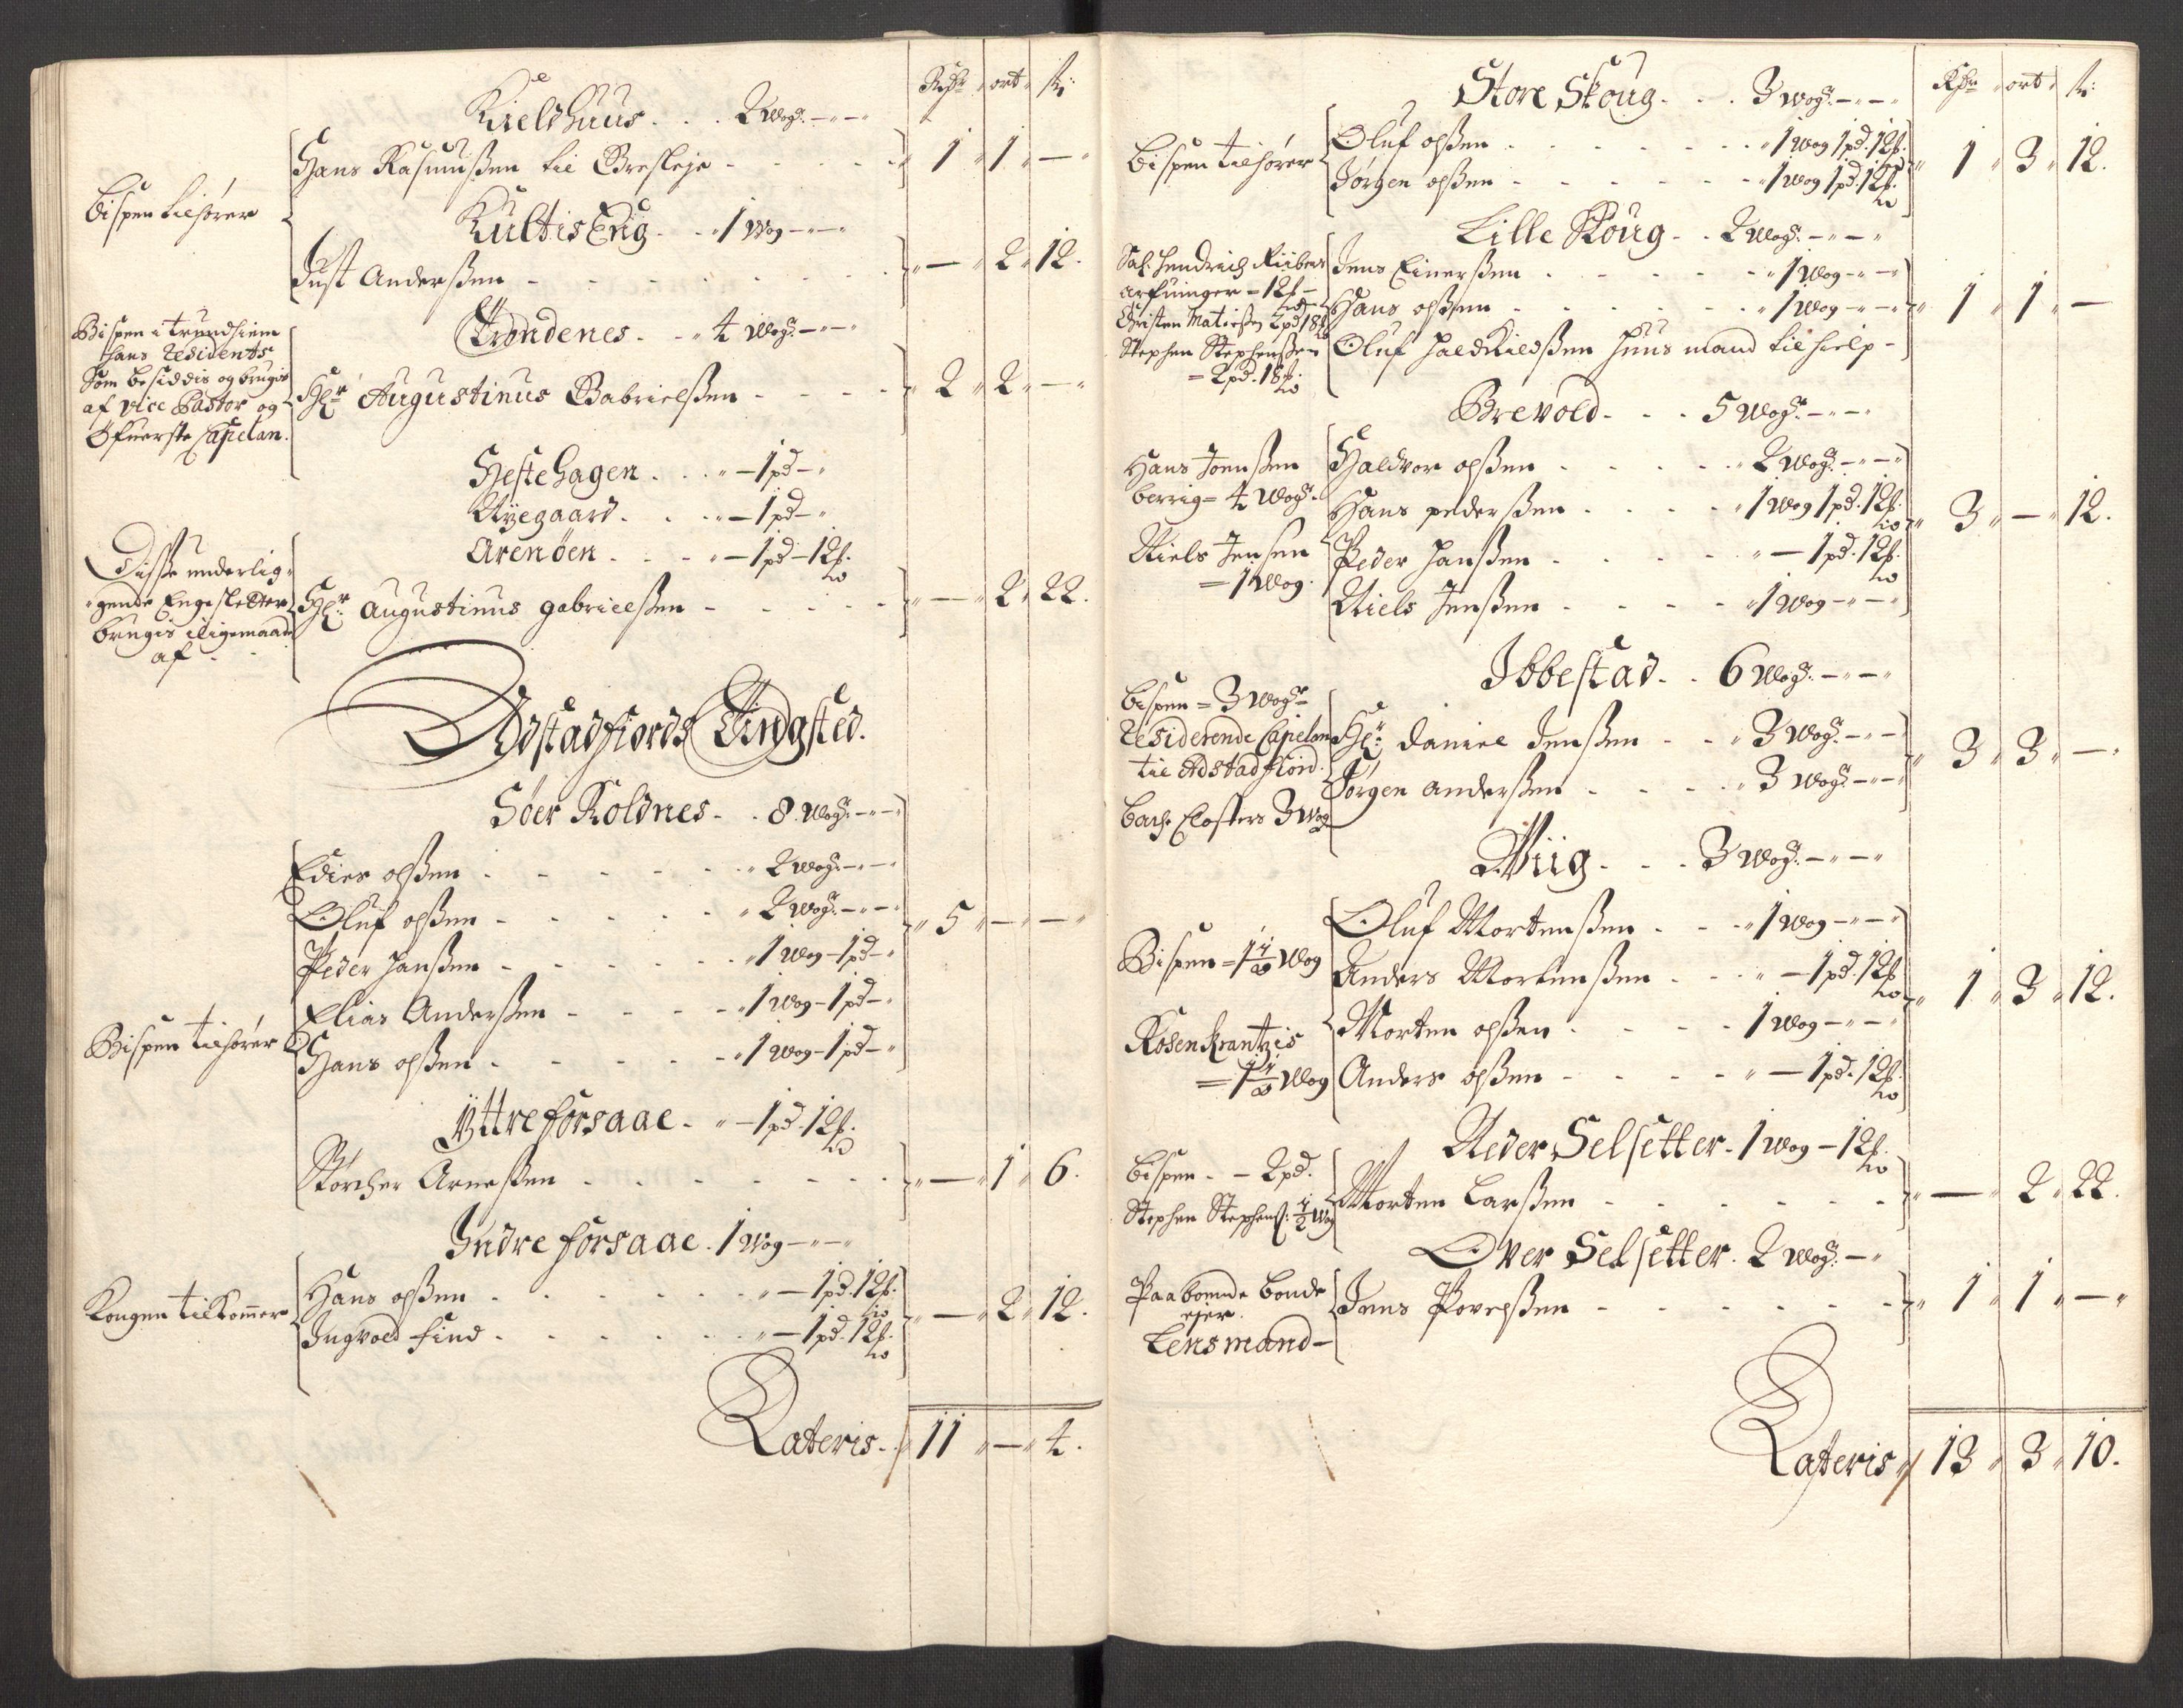 Rdr ort ß:
Kieldhuus. . . 2 wog - " -
Hans Rasmusßen til Bresleje - - - - 1 1 -
Bispen tilhører
Kultis Eng. . . 1 Wog - " -
Just Anderßen - - - - - - - 2 12.
Trondenes. . . 4 Wog - " -
Bispen i Trundhiem
hans Residents
Som besiddis og brugis
af vice Pastor og
Øfuerste Capelan.
Hr Augustinus Gabrielßen - - - 2 2 -
Hestehagen. . . " - 1 pd - "
Nyegaard. . . " - 1 pd - "
Arenöen. . . " - 1 pd - 12 ß.
Disse underlig-
gende Engesletter
brugis iligemaade
af - -
Hr: Augustinus gabrielßen - - - - - 2 22.
Adstadfiords Tingsted.
Söer Roldnes. . 8. Wog - " -
Edies olßen - - - - - 2 wog - " -
Oluf olßen - - - - - 2 wog - " - 5 - -
Peder Hanßen - - - - - 1 Wog - 1 pd - "
Elias Anderßen - - - - 1 Wog - 1 pd - "
Bispen tilhører
Hans olßen - - - - - 1 wog - 1 pd - "
Yttreforsaae. " - 1 pd. 12 ß.
Storcher Arneßen - - - - - - - 1 6.
Indre forsaae. 1 Wog - " -
Kongen tilkommer
Hans olßen - - - - - " - 1 pd. 12 ß.
Ingvold find - - - - - " - 1 pd. 12 ß. - 2 12.
Lateris. 11 - 4.
Rdr ort ß:
Store Skoug. . . 3 wog - " -
Bispen tilhører
Oluf olßen - - - - - 1 wog 1 pd. 12 ß.
Jörgen olßen - - - - - 1 wog 1 pd. 12 ß. 1 3 12.
Lille Skoug. . 2 Wog - " -
Sal. Hendrich Riibers
arfuinger - 12 ß -
Christen Matisßen 2 pd 18 ß
Stephen Stephenßen
= 2 pd. 18 ß.
Jens Einerßen - - - - - 1 Wog - " -
Hans olßen - - - - - 1 Wog - " - 1 1 -
Oluf Haldkildßen huus mand til hielp -
Brevold. . . 5 Wog - " -
Hans Jonßen
berrig = 4 Wog.
Niels Jensen
= 1 Wog.
Haldvor olßen - - - - 2 Wog - " -
Hans pederßen - - - - 1 Wog 1 pd. 12 ß. 3 - 12.
Peder Hanßen - - - - " - 1 pd. 12 ß.
Niels Jenßen - - - - 1 Wog - " -
Ibbestad. . 6 Wog - " -
Bispen = 3 Wog
Residerende Capelan
til Adstadfiord.
Bach. Closters 3 Wog
Hr: Daniel Jenßen - - 3 Wog - " - 3 3 -
Jörgen Anderßen - - - - 3 Wog - " -
Wiig. . . 3 Wog - " -
Bispen = 1 1/2 Wog
Rosenkrantzis
= 1 1/2 Wog
Oluf Mortenßen - - - 1 Wog - " -
Anders Mortenßen - - " - 1 pd. 12 ß. 1 3 12.
Morten olßen - - - - 1 Wog - " -
Anders olßen - - - - " - 1 pd. 12 ß.
Neder Selsetter. 1 Wog - 12 ß.
Bispen. - 2 pd.
Stephen Stephens: 1/2 Wog
Morten Larßen - - - - - - - 2 22.
Over Selsetter. 2 Wog - "
Paaboende bonde
ejer.
Lensmand -
Jens Povelßen - - - - - - 1 1 -
Lateris 13 3 10.